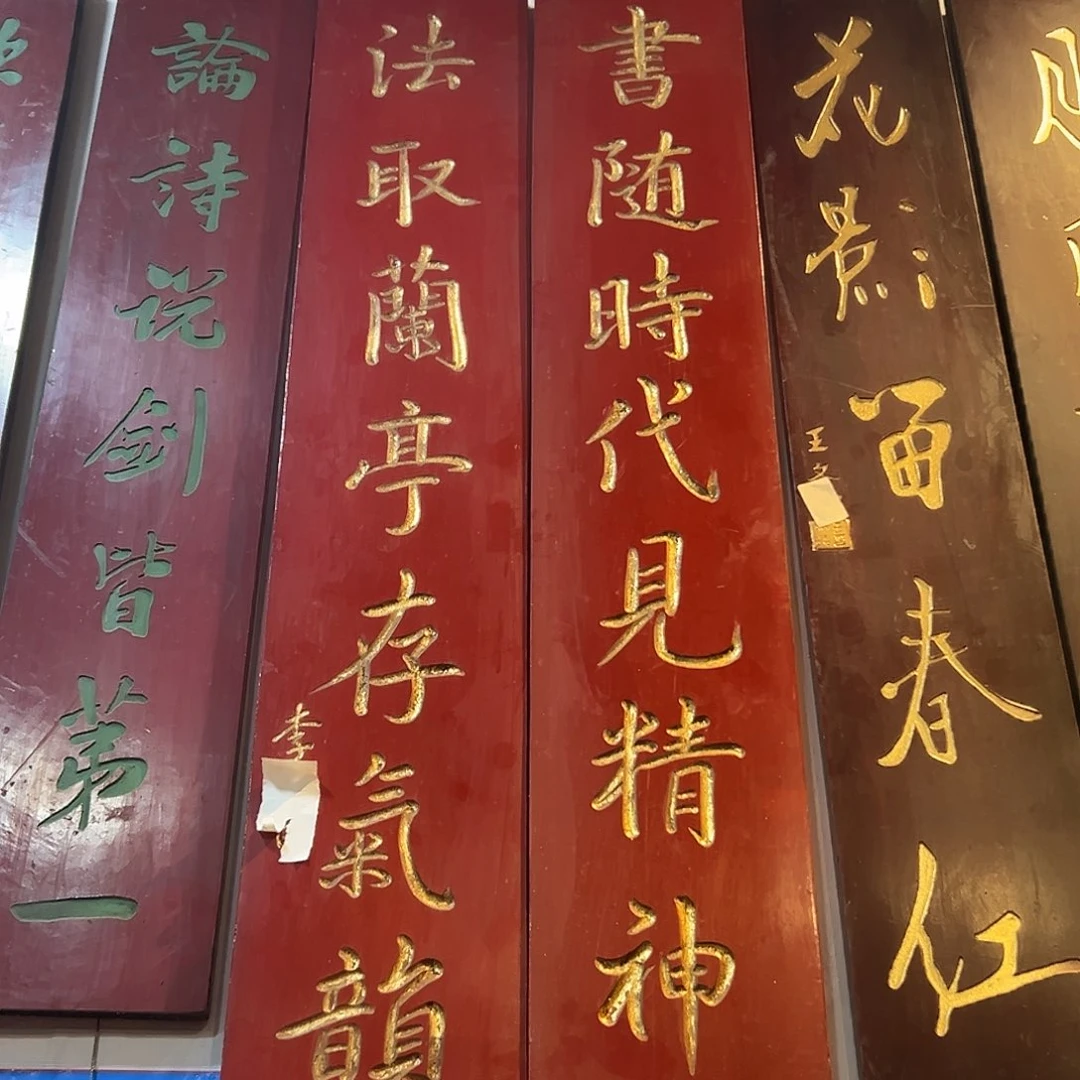 花影留春红
王文
書随時代見精神
法取蘭亭存氣韻
李
論詩说劍皆第一